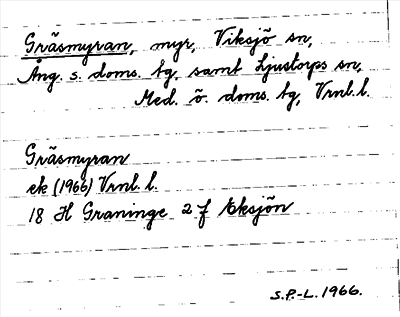 Gräsmyran, myr, Viksjö sn,
Ång. s. doms. tg, samt Ljustorps sn,
Med. ö. doms. tg, Vrnl. l.
Gräsmyran
ek (1966) Vrnl. l.
18 H Graninge 2 f Eksjön
S.P.-L. 1966.